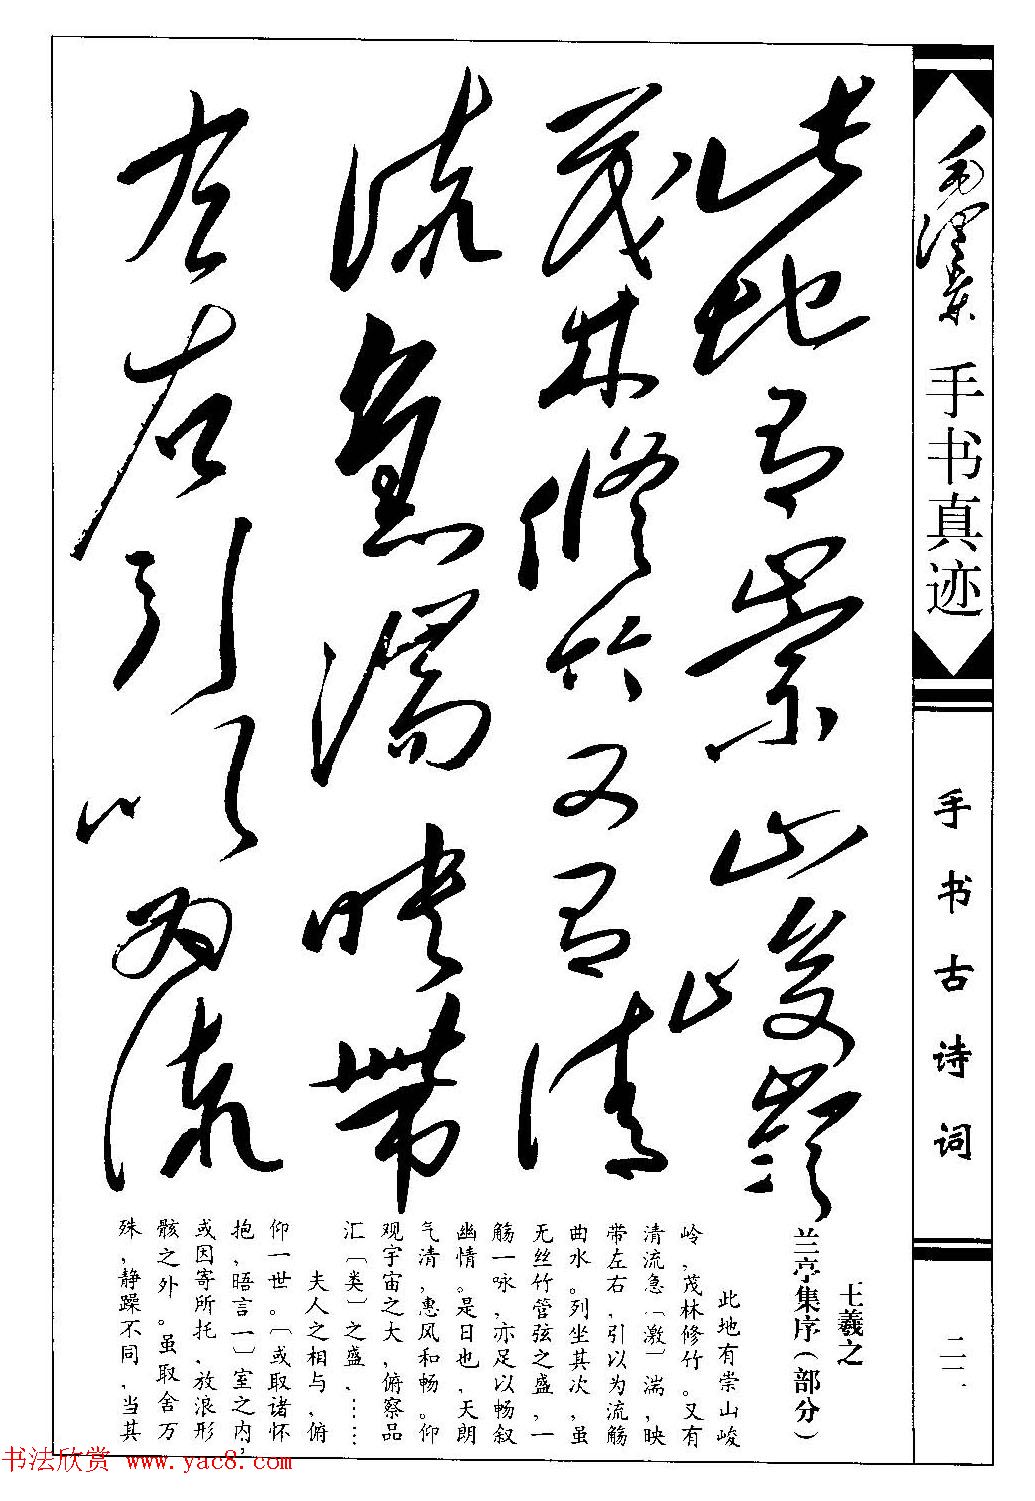 毛泽东手书真迹
手书古诗词
二一
此地有崇山峻岭
茂林修竹又有清
流急湍映带
左右引以为流
王羲之
兰亭集序（部分）
此地有崇山峻
岭，茂林修竹。又有
清流急〔激〕湍，映
带左右，引以为流觞
曲水。列坐其次，虽
无丝竹管弦之盛，一
觞一咏，亦足以畅叙
幽情。是日也，天朗
气清，惠风和畅。仰
观宇宙之大，俯察品
汇〔类〕之盛，……
夫人之相与，俯
仰一世。〔或取诸怀
抱，晤言一〕室之内，
或因寄所托，放浪形
骸之外。虽取舍万
殊，静躁不同，当其
书法欣赏 www.yac8.com